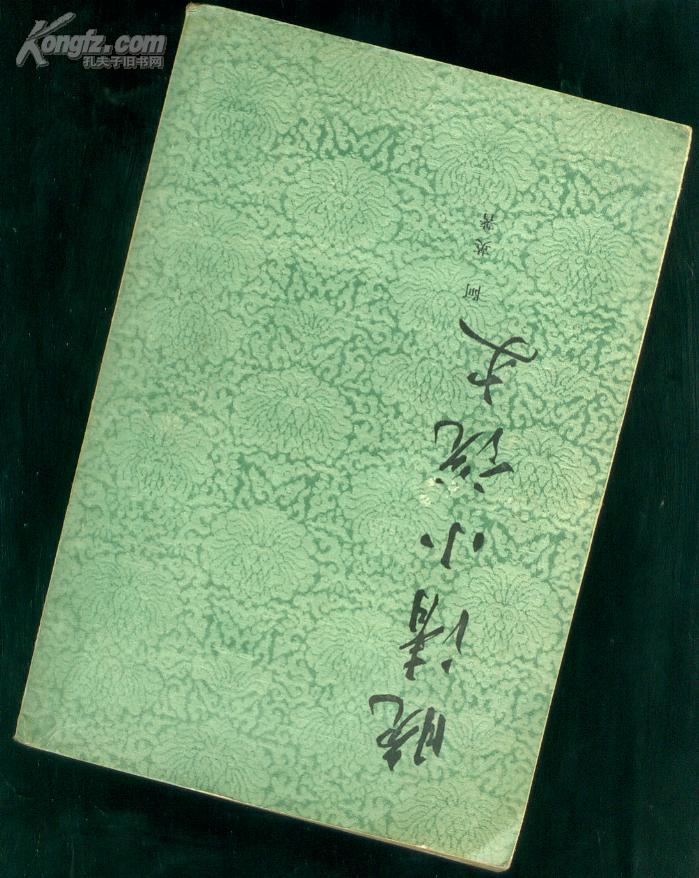 Kongfz.com
孔夫子旧书网
晚清小说史
阿英著